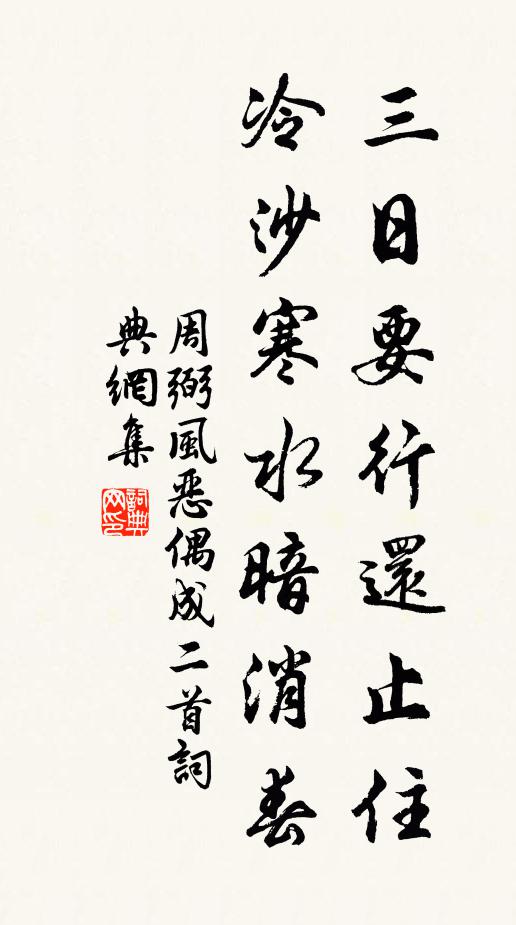 三日要行還止住
冷沙寒水暗消春
周弼風惡偶成二首詞
典網集
詞典
网印